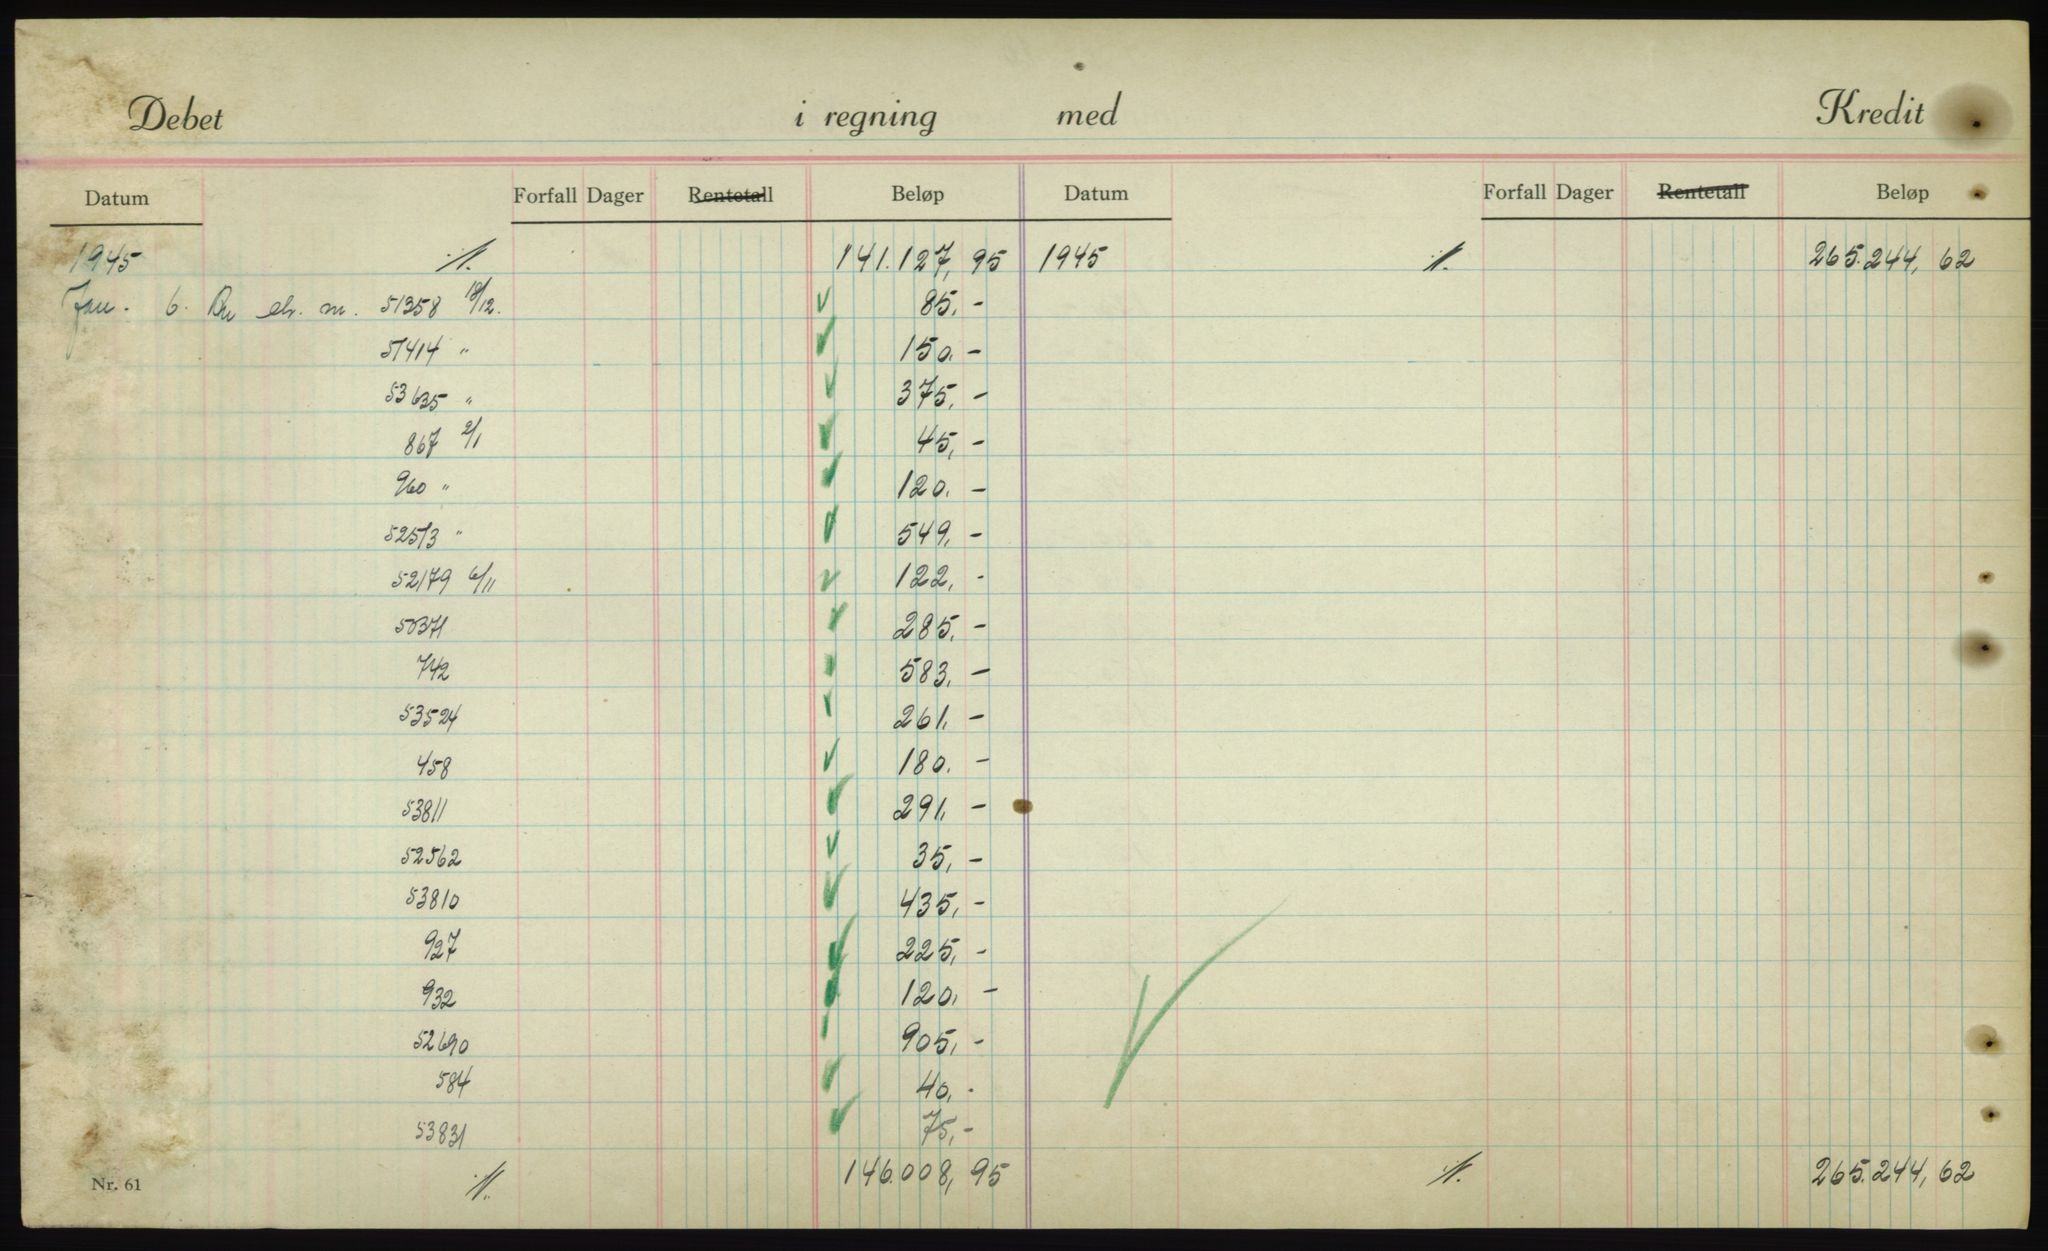 Debet i regning med Kredit
Datum Forfall Dager Rentetall Beløp Datum Forfall Dager Rentetall Beløp
1945 ·/· 141.127,95 1945 ·/· 265.244,62
Jan. 6. m. 51358 18/12. 85,-
51414 " 150,-
53635 " 375,-
867 2/1 45,-
960 " 120,-
52513 " 549,-
52179 6/11 122,-
50371 285,-
742 583,-
53524 261,-
458 180,-
53811 291,-
52562 35,-
53810 435,-
927 225,-
932 120,-
52690 905,-
584 40,-
53831 75,-
Nr. 61 ·/· 146.008,95 ·/· 265.244,62